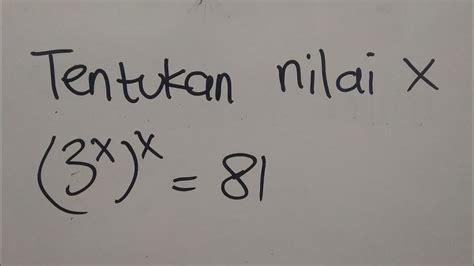 Tentukan nilai x
(3^x)^x = 81